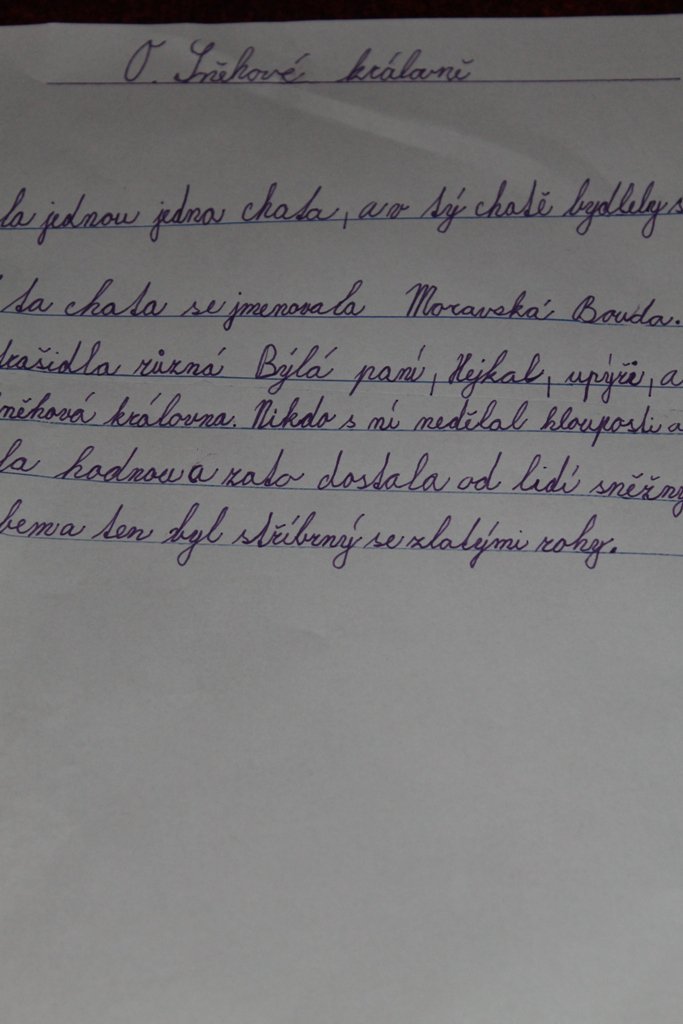 O. Sněhové královně
la jednou jedna chata, a v tý chatě bydlely s
ta chata se jmenovala Moravská Bouda.
trašidla různá Býlá paní, Hejkal, upýři, a
něhová královna. Nikdo s ní nedělal hlouposti a
la hodnou a zato dostala od lidí sněžný
bem a ten byl stříbrný se zlatými rohy.